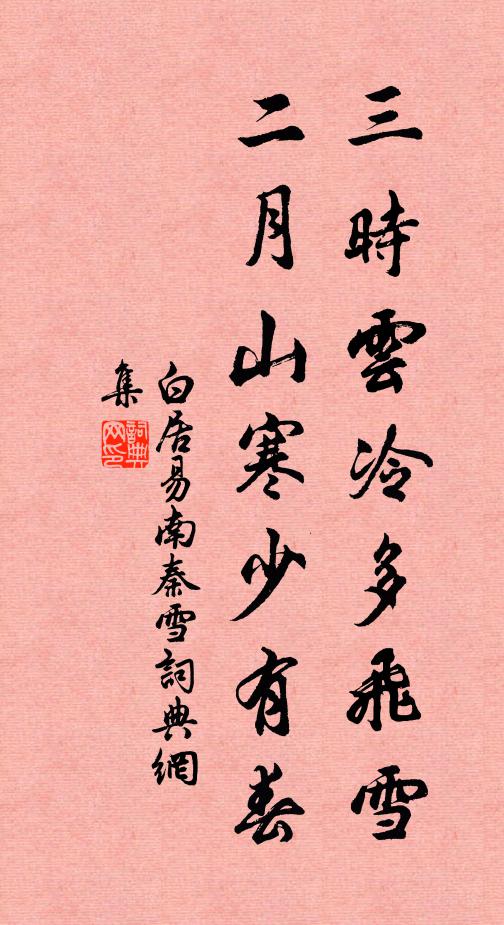 三時雲冷多飛雪
二月山寒少有春
白居易南秦雪詞典網
集
詞典
网印